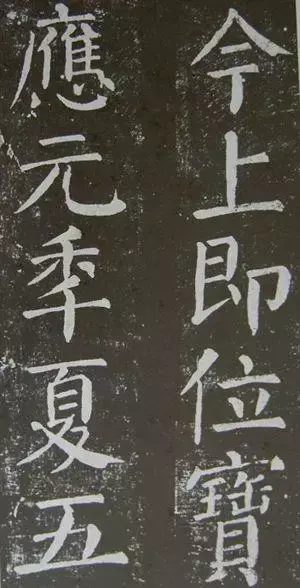 今上即位寶
應元年夏五